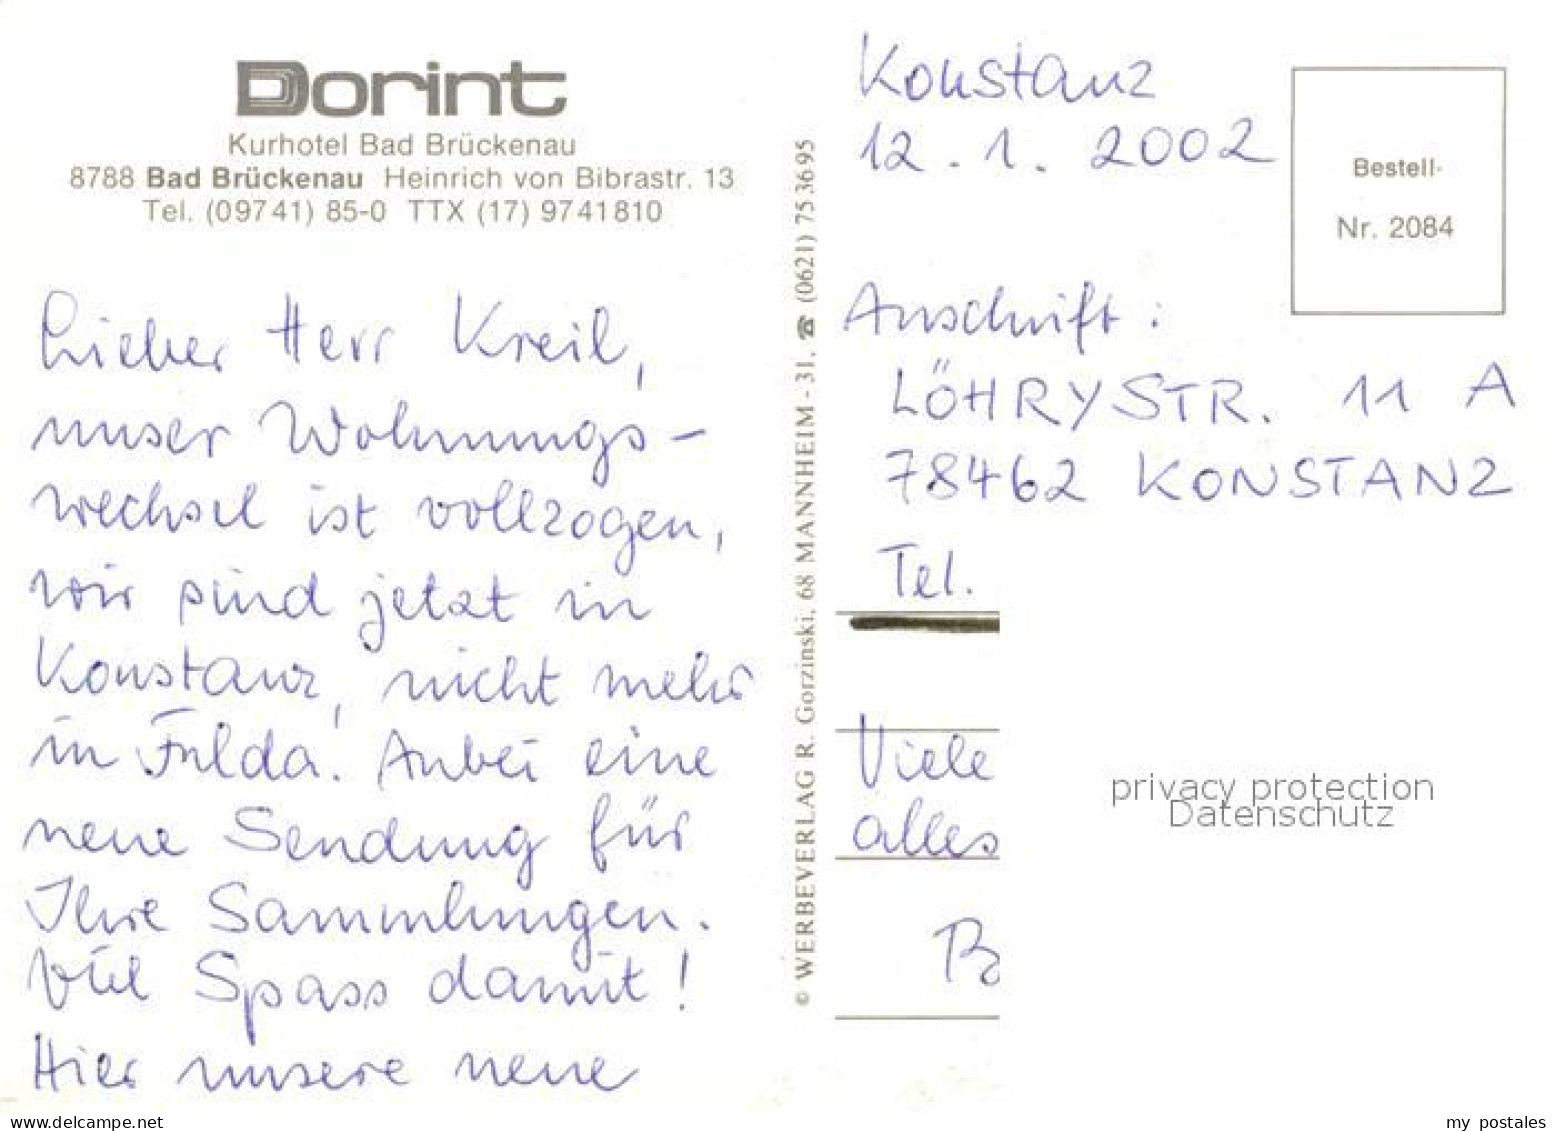 Dorint
Kurhotel Bad Brückenau
8788 Bad Brückenau Heinrich von Bibrastr. 13
Tel. (09741) 85-0 TTX (17) 9741810
Lieber Herr Kreil,
unser Wohnungs-
wechsel ist vollzogen,
wir sind jetzt in
Konstanz, nicht mehr
in Fulda. Anbei eine
neue Sendung für
Ihre Sammlungen.
Viel Spass damit!
Hier unsere neue
© WERBEVERLAG R. Gorzinski, 68 MANNHEIM - 31, ☎ (0621) 753695
Konstanz
12.1.2002
Bestell-
Nr. 2084
Anschrift:
LÖHRYSTR. 11 A
78462 KONSTANZ
Tel.
Viele
alles
B
privacy protection
Datenschutz
www.delcampe.net
my postales